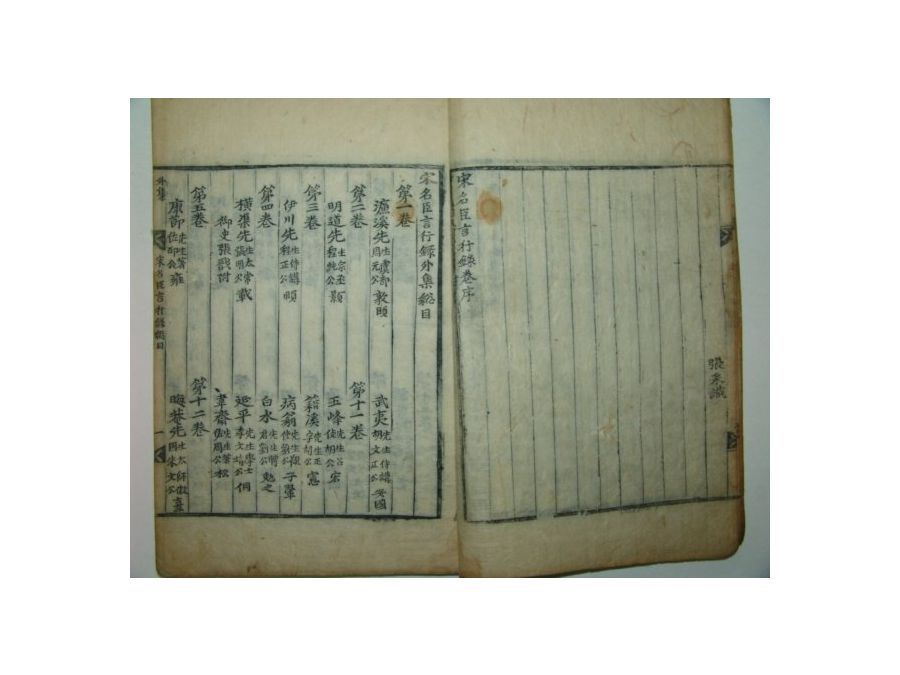 張采識
宋名臣言行錄卷序
宋名臣言行録外集緫目
第一卷
濂溪先生虞部周元公敦頤
第二卷
明道先生宗丞程純公顥
第三卷
伊川先生侍講程正公頤
第四卷
横渠先生太常張明公載
御史張戩附
第五卷
康節先生著佐邵公雍
武夷先生侍講胡文正公安國
第十一卷
五峰先生胡公宏
籍溪先生正字胡公憲
病翁先生劉公子翬
白水先生聘君劉公勉之
延平先生李文靖公侗
韋齋先生周公松
第十二卷
晦菴先生太師徽國朱文公熹
外集
宋名臣言行録緫目
一